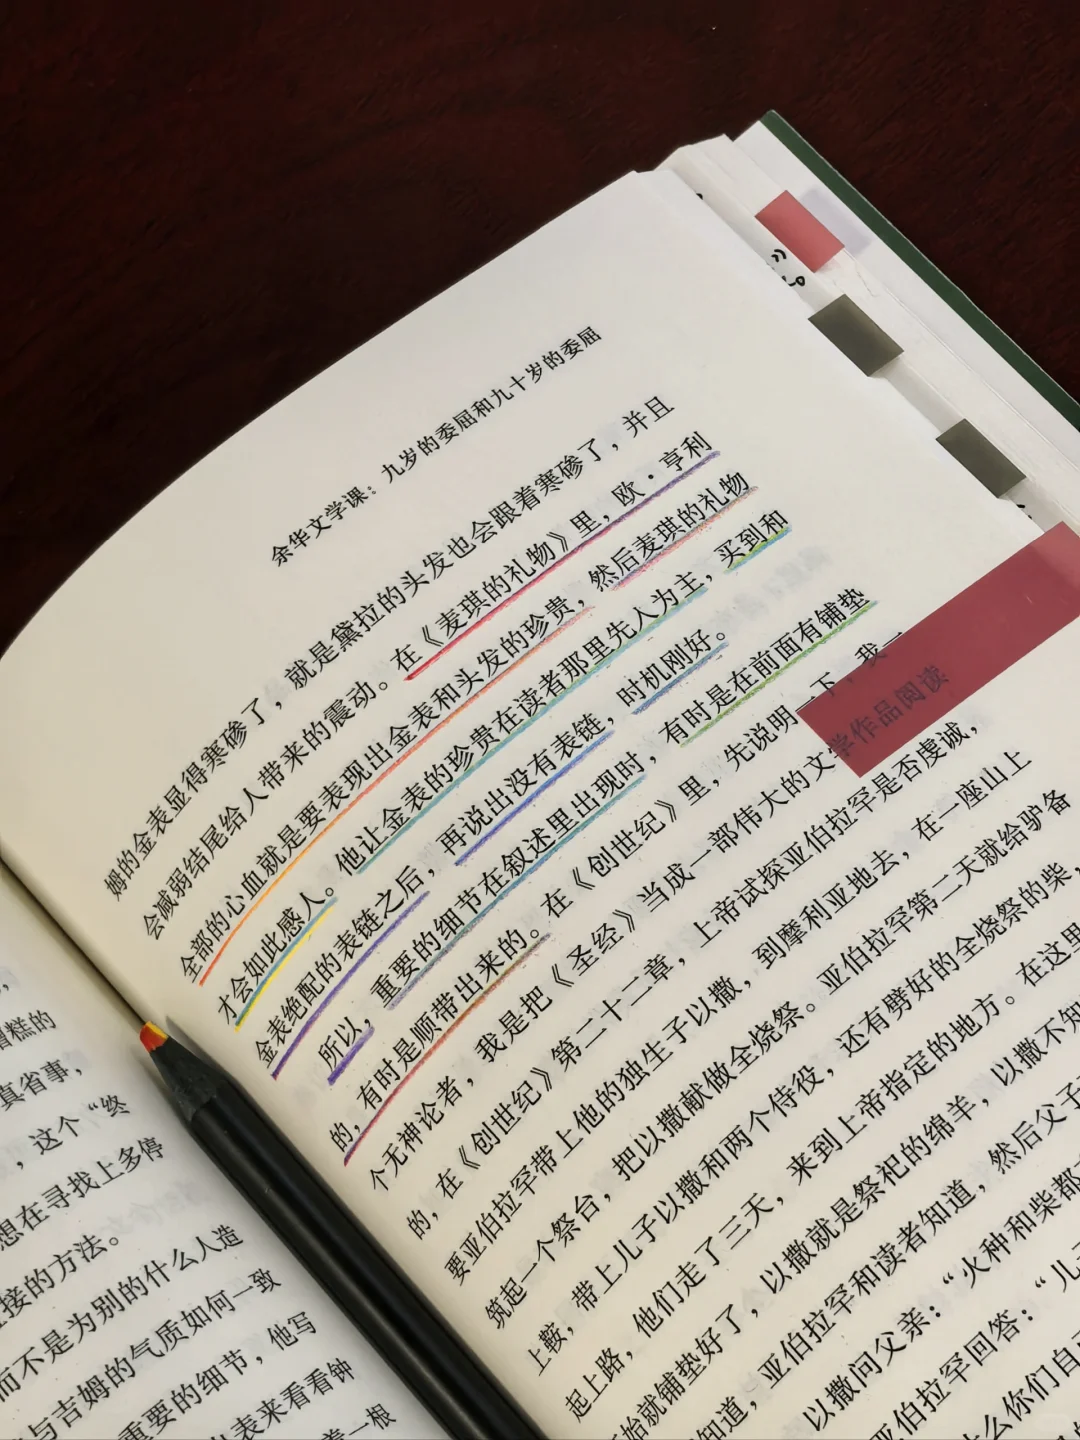 糟糕的
真省事，
，这个“终
想在寻找上多停
接的方法。
而不是为别的什么人造
与吉姆的气质如何一致
重要的细节，他写
出表来看看钟
着一根
余华文学课：九岁的委屈和九十岁的委屈
姆的金表显得寒碜了，就是黛拉的头发也会跟着寒碜了，并且
会减弱结尾给人带来的震动。在《麦琪的礼物》里，欧·亨利
全部的心血就是要表现出金表和头发的珍贵，然后麦琪的礼物
才会如此感人。他让金表的珍贵在读者那里先入为主，买到和
金表绝配的表链之后，再说出没有表链，时机刚好。
所以，重要的细节在叙述里出现时，有时是在前面有铺垫
的，有时是顺带出来的。在《创世纪》里，先说明一下，我一
个无神论者，我是把《圣经》当成一部伟大的文学作品阅读
的，在《创世纪》第二十二章，上帝试探亚伯拉罕是否虔诚，
要亚伯拉罕带上他的独生子以撒，到摩利亚地去，在一座山上
筑起一个祭台，把以撒献做全烧祭。亚伯拉罕第二天就给驴备
上鞍，带上儿子以撒和两个侍役，还有劈好的全烧祭的柴，
起上路，他们走了三天，来到上帝指定的地方。在这里
始就铺垫好了，以撒就是祭祀的绵羊，以撒不知
知道，亚伯拉罕和读者知道，然后父子
以撒问父亲：“火种和柴都
亚伯拉罕回答：“儿
么你们自